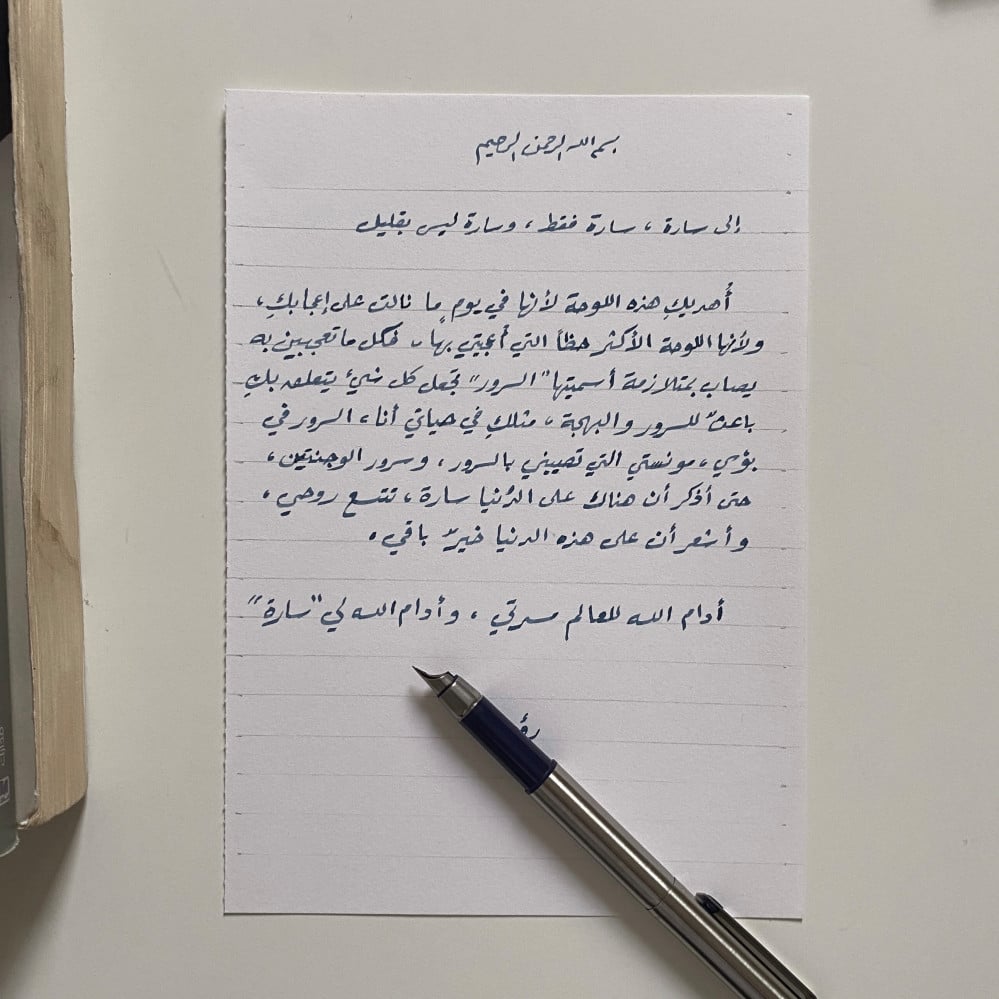 بسم الله الرحمن الرحيم
إلى سارة ، سارة فقط ، وسارة ليس بقليل
أُهديكِ هذه اللوحة لأنها في يومٍ ما نالت على إعجابكِ ،
ولأنها اللوحة الأكثر حظاً التي أُعجبتي بها ، فكل ما تعجبين به
يصاب بمتلازمة أسميتها "السرور" تجعل كل شيئ يتعلق بكِ
باعثٌ للسرور والبهجة ، مثلكِ في حياتي أنا ، السرور في
بؤسي ، مونستي التي تصيبني بالسرور ، وسرور الوجنتين ،
حتى أذكر أن هناك على الدُنيا سارة ، تتسع روحي ،
وأشعر أن على هذه الدنيا خيرٌ باقي .
أدام الله للعالم مسرتي ، وأدام الله لي "سارة"